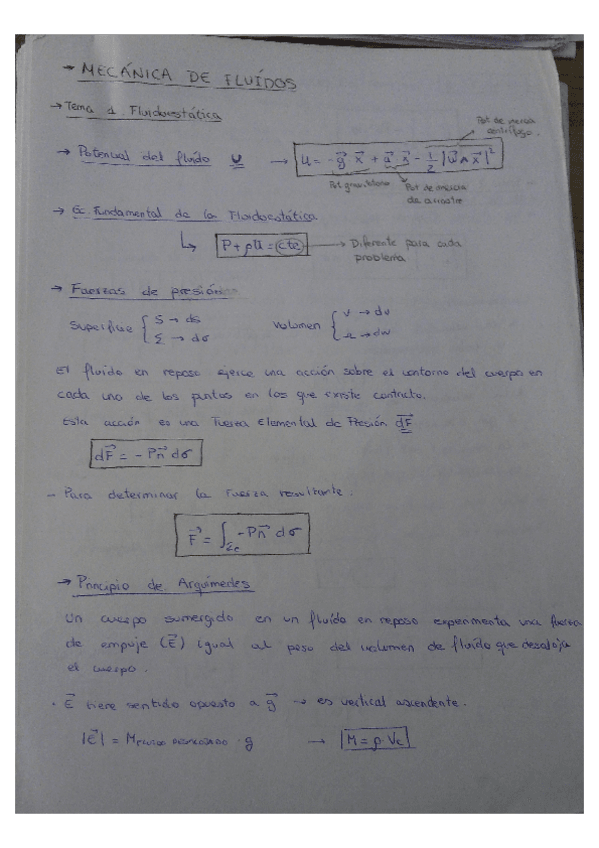 → MECÁNICA DE FLUÍDOS
→ Tema 1 Fluidoestática
Pot de inercia
centrífuga.
→ Potencial del fluido U → U = -g⃗ x⃗ + a⃗ x⃗ - 1/2 |ω⃗ ∧ x⃗|²
Pot gravitatorio Pot de inercia
de arrastre
→ Ec. Fundamental de la Fluidoestática.
↳ P + ρU = cte → Diferente para cada
problema
→ Fuerzas de presión
Superficie { S → ds Volumen { V → dv
Σ → dσ Ω → dω
El fluido en reposo ejerce una acción sobre el contorno del cuerpo en
cada uno de los puntos en los que existe contacto.
Esta acción es una Fuerza Elemental de Presión dF⃗
dF⃗ = - P n⃗ dσ
- Para determinar la fuerza resultante:
F⃗ = ∫Σc - P n⃗ dσ
→ Principio de Arquímedes
Un cuerpo sumergido en un fluído en reposo experimenta una fuerza
de empuje (E⃗) igual al peso del volumen de fluído que desaloja
el cuerpo.
· E⃗ tiene sentido opuesto a g⃗ → es vertical ascendente.
|E⃗| = M FLUIDO DESALOJADO · g → M = ρ · Vc